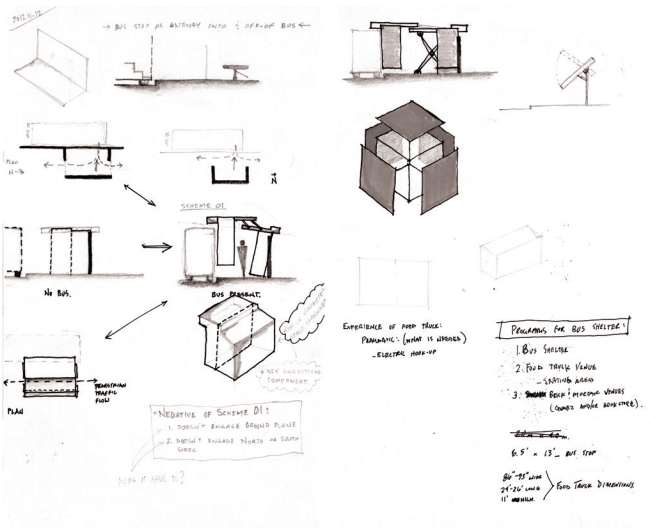 2012.11.12
→ BUS STOP AS GATEWAY ONTO & OFF-OF BUS ←
BUS
BUS
PLAN
N →
N
SCHEME 01
NO BUS.
BUS PRESENT.
PLAN
PEDESTRIAN
TRAFFIC
FLOW
* NEW ANALYTICAL
COMPONENT.
* NEGATIVE OF SCHEME 01:
1. DOESN'T ENGAGE GROUND PLANE
2. DOESN'T ENGAGE NORTH OR SOUTH
SIDES.
DOES IT HAVE TO?
EXPERIENCE OF FOOD TRUCK:
PRAGMATIC: (WHAT IS NEEDED)
- ELECTRIC HOOK-UP
PROGRAMS FOR BUS SHELTER:
1. BUS SHELTER
2. FOOD TRUCK VENUE
- SEATING AREAS
3. BRICK & MORTAR VENUES
(COMBO AND/OR BOOKSTORE).
6.5' x 13' - BUS STOP
86"-95" WIDE
24'-26' LONG
11' HIGH.
FOOD TRUCK DIMENSIONS